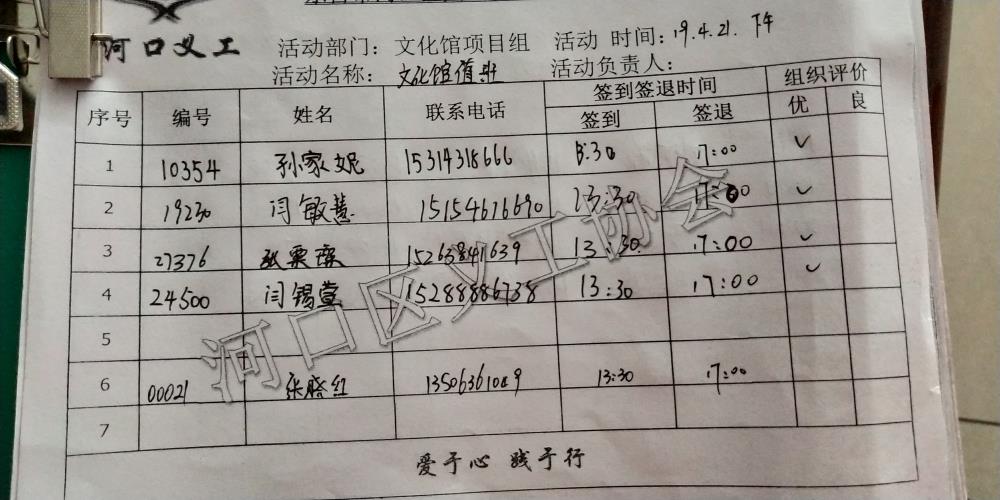 河口义工 活动部门： 文化馆项目组 活动 时间：19.4.21. 下午
活动名称： 文化馆值班 活动负责人：
序号 编号 姓名 联系电话 签到签退时间 组织评价
签到 签退 优 良
1 10354 孙家妮 15314318666 13:30 17:00 ✓
2 19230 闫敏慧 15154676690 13:30 17:00 ✓
3 27376 张 15263841639 13:30 17:00 ✓
4 24500 闫锡堂 15288886738 13:30 17:00 ✓
5
6 00021 张晓红 13506361049 13:30 17:00
7
爱于心 践于行
河口区义工协会